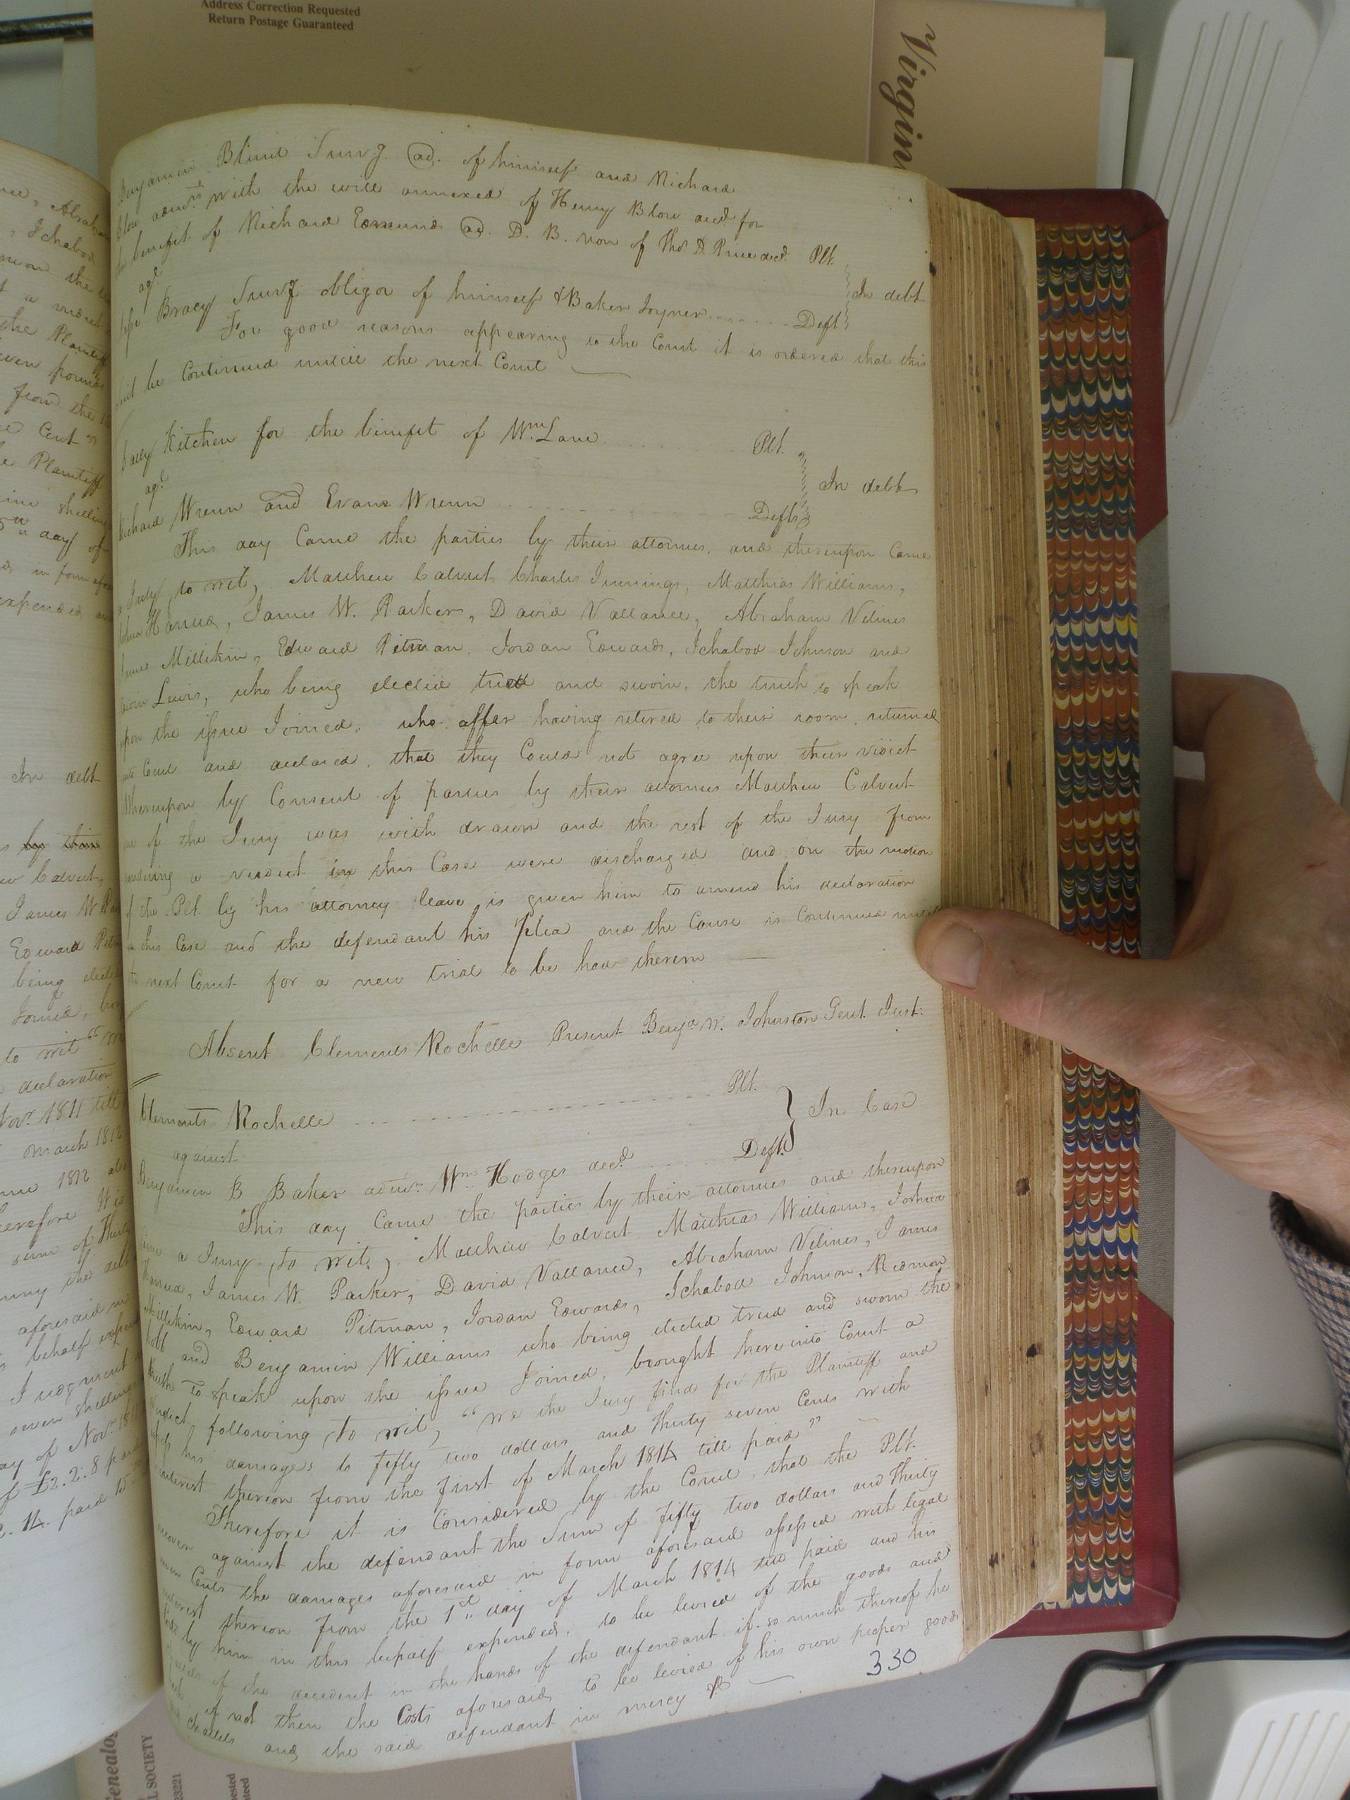 Address Correction Requested
Return Postage Guaranteed
Virgin
Benjamin Blunt Surv.g ad. of himself and Richard
Blow adm.rs with the will annexed of Henry Blow dec.d for
the benefit of Richard Edmunds ad. D. B. non of Tho.s D Price dec.d Plt.
ag.t
Bracy Surv.g obligor of himself & Baker Joyner Deft
In debt
For good reasons appearing to the Court it is ordered that this
suit be Continued untill the next Court
Kitchen for the benefit of Wm. Lane Plt.
ag.t
In debt
Richard Wrenn and Evans Wrenn Defts
This day Came the parties by their attornies, and thereupon Came
a Jury, to wit, Matthew Calvert, Charles Jennings, Matthias Williams,
Hannah, James W. Parker, David Vallance, Abraham Vilines
James Millikin, Edward Pitman, Jordan Edwards, Ichabod Johnson and
Lewis, who being elected tried and sworn, the truth to speak
upon the issue Joined, who after having retired to their room, returned
into Court and declared, that they Could not agree upon their verdict
Whereupon by Consent of parties by their attornies Matthew Calvert
one of the Jury was with drawn and the rest of the Jury from
rendering a verdict in this Case were discharged and on the motion
of the Plt. by his attorney leave is given him to amend his declaration
in this Case and the defendant his plea and the Cause is Continued untill
the next Court for a new trial to be had therein
Absent Clements Rochelle Present Benj.a W. Johnston Gent. Just.
Clements Rochelle Plt.
against
In Case
Benjamin B Baker adm.r Wm Hodges dec.d Deft.
This day Came the parties by their attornies and thereupon
came a Jury, to wit, Matthew Calvert Matthias Williams, Joshua
Hannah, James W. Parker, David Vallance, Abraham Vilines, James
Millikin, Edward Pitman, Jordan Edwards, Ichabod Johnson, Redmon
and Benjamin Williams who being elected tried and sworn the
truth to speak upon the issue Joined, brought here into Court a
verdict, following, to wit, "We the Jury find for the Plaintiff and
assess his damages to fifty two dollars and thirty seven Cents with
interest thereon from the first of March 1814 till paid"
Therefore it is Considered by the Court, that the Plt.
recover against the defendant the Sum of fifty two dollars and thirty
seven Cents the damages aforesaid in form aforesaid assessed with legal
interest thereon from the 1st day of March 1814 till paid and his
Costs by him in this behalf expended, to be levied of the goods and
chattels of the decedent in the hands of the defendant if so much thereof he
hath if not then the Costs aforesaid, to be levied of his own proper goods
and chattels and the said defendant in mercy &c
330
Abraham
Ichabod
In debt
by their
Calvert,
James W Par
Edward Pit
being elect
Joined,
to wit "
declaration
Nov.r 1811 till
march 1812
1812
Therefore
sum of thirty
aforesaid
behalf expen
Judgment
seven shillin
day of Nov.r 18
£2.2.8
14 paid 15
Genealog
L SOCIETY
23221